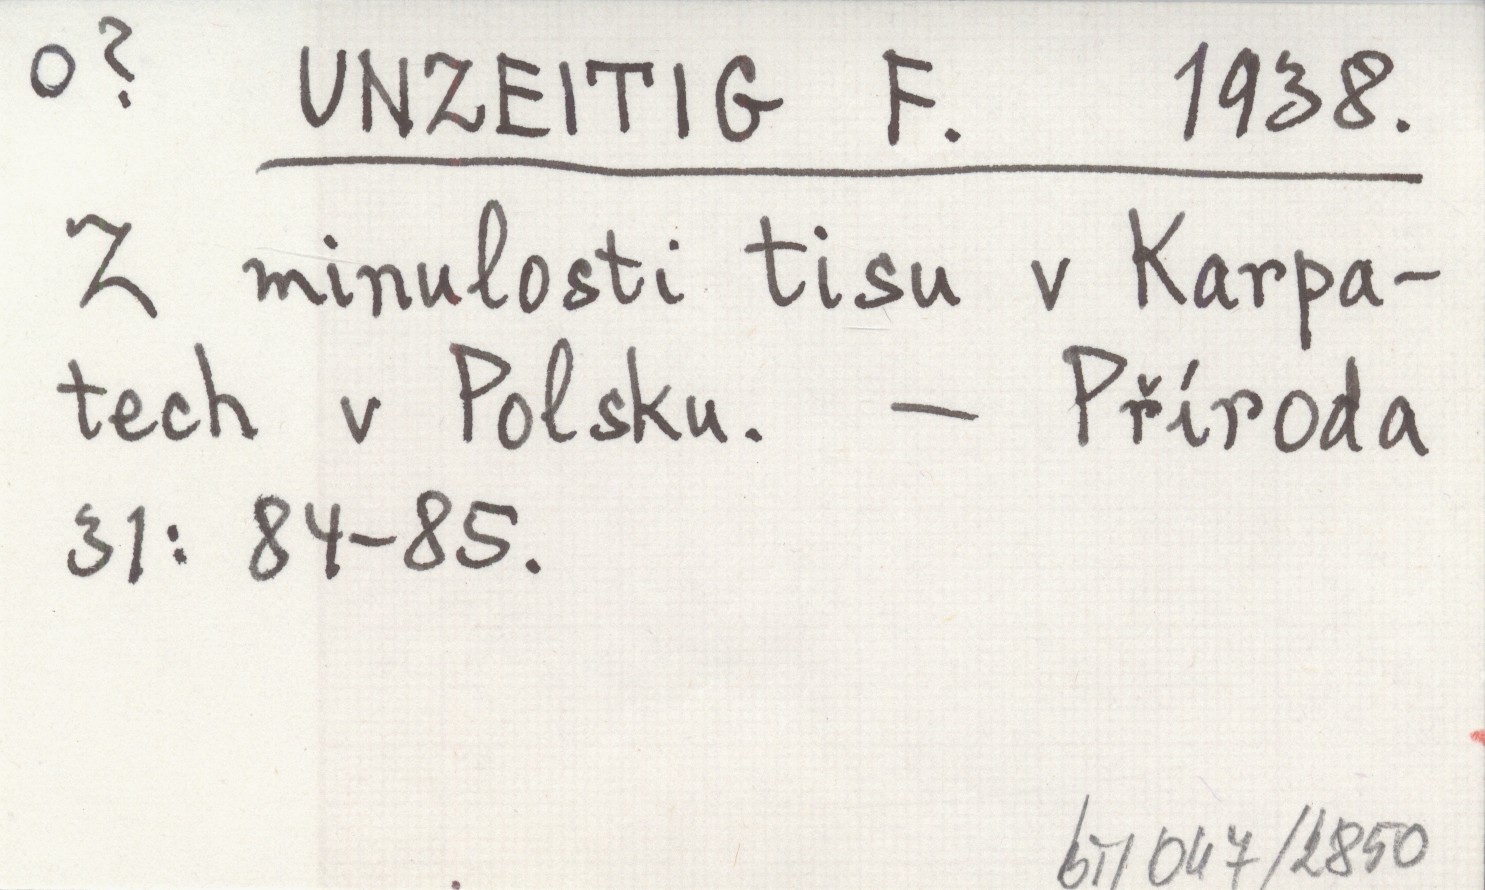 o? UNZEITIG F. 1938.
Z minulosti tisu v Karpa-
tech v Polsku. — Příroda
31: 84-85.
047/2850